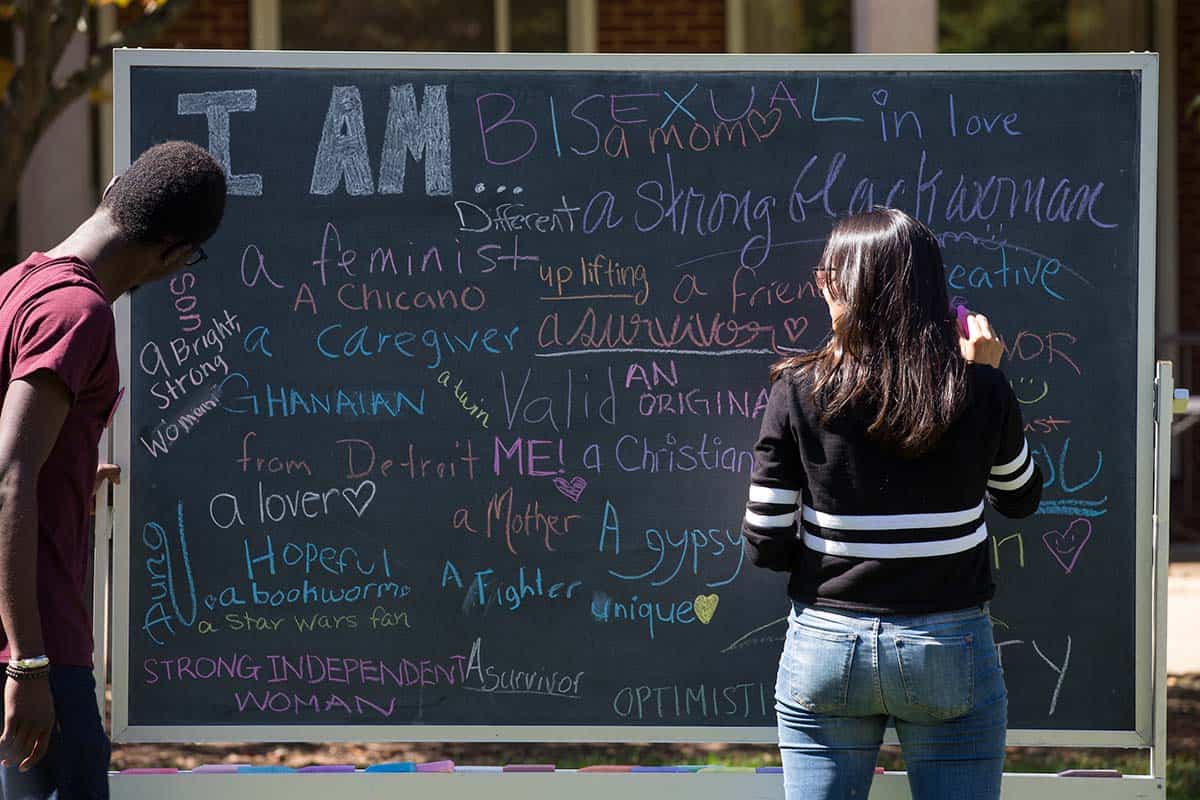 I AM ...
BISEXUAL
a mom
in love
Different
a strong black woman
a feminist
uplifting
A Chicano
a frien
creative
Son
a Bright,
Strong
Woman
a caregiver
a survivor
GHANAIAN
a twin
Valid
AN
ORIGINA
from Detroit
ME!
a Christian
a lover
a Mother
A gypsy
Hopeful
a bookworm
A Fighter
unique
a Star Wars fan
STRONG INDEPENDENT
WOMAN
A survivor
OPTIMISTI